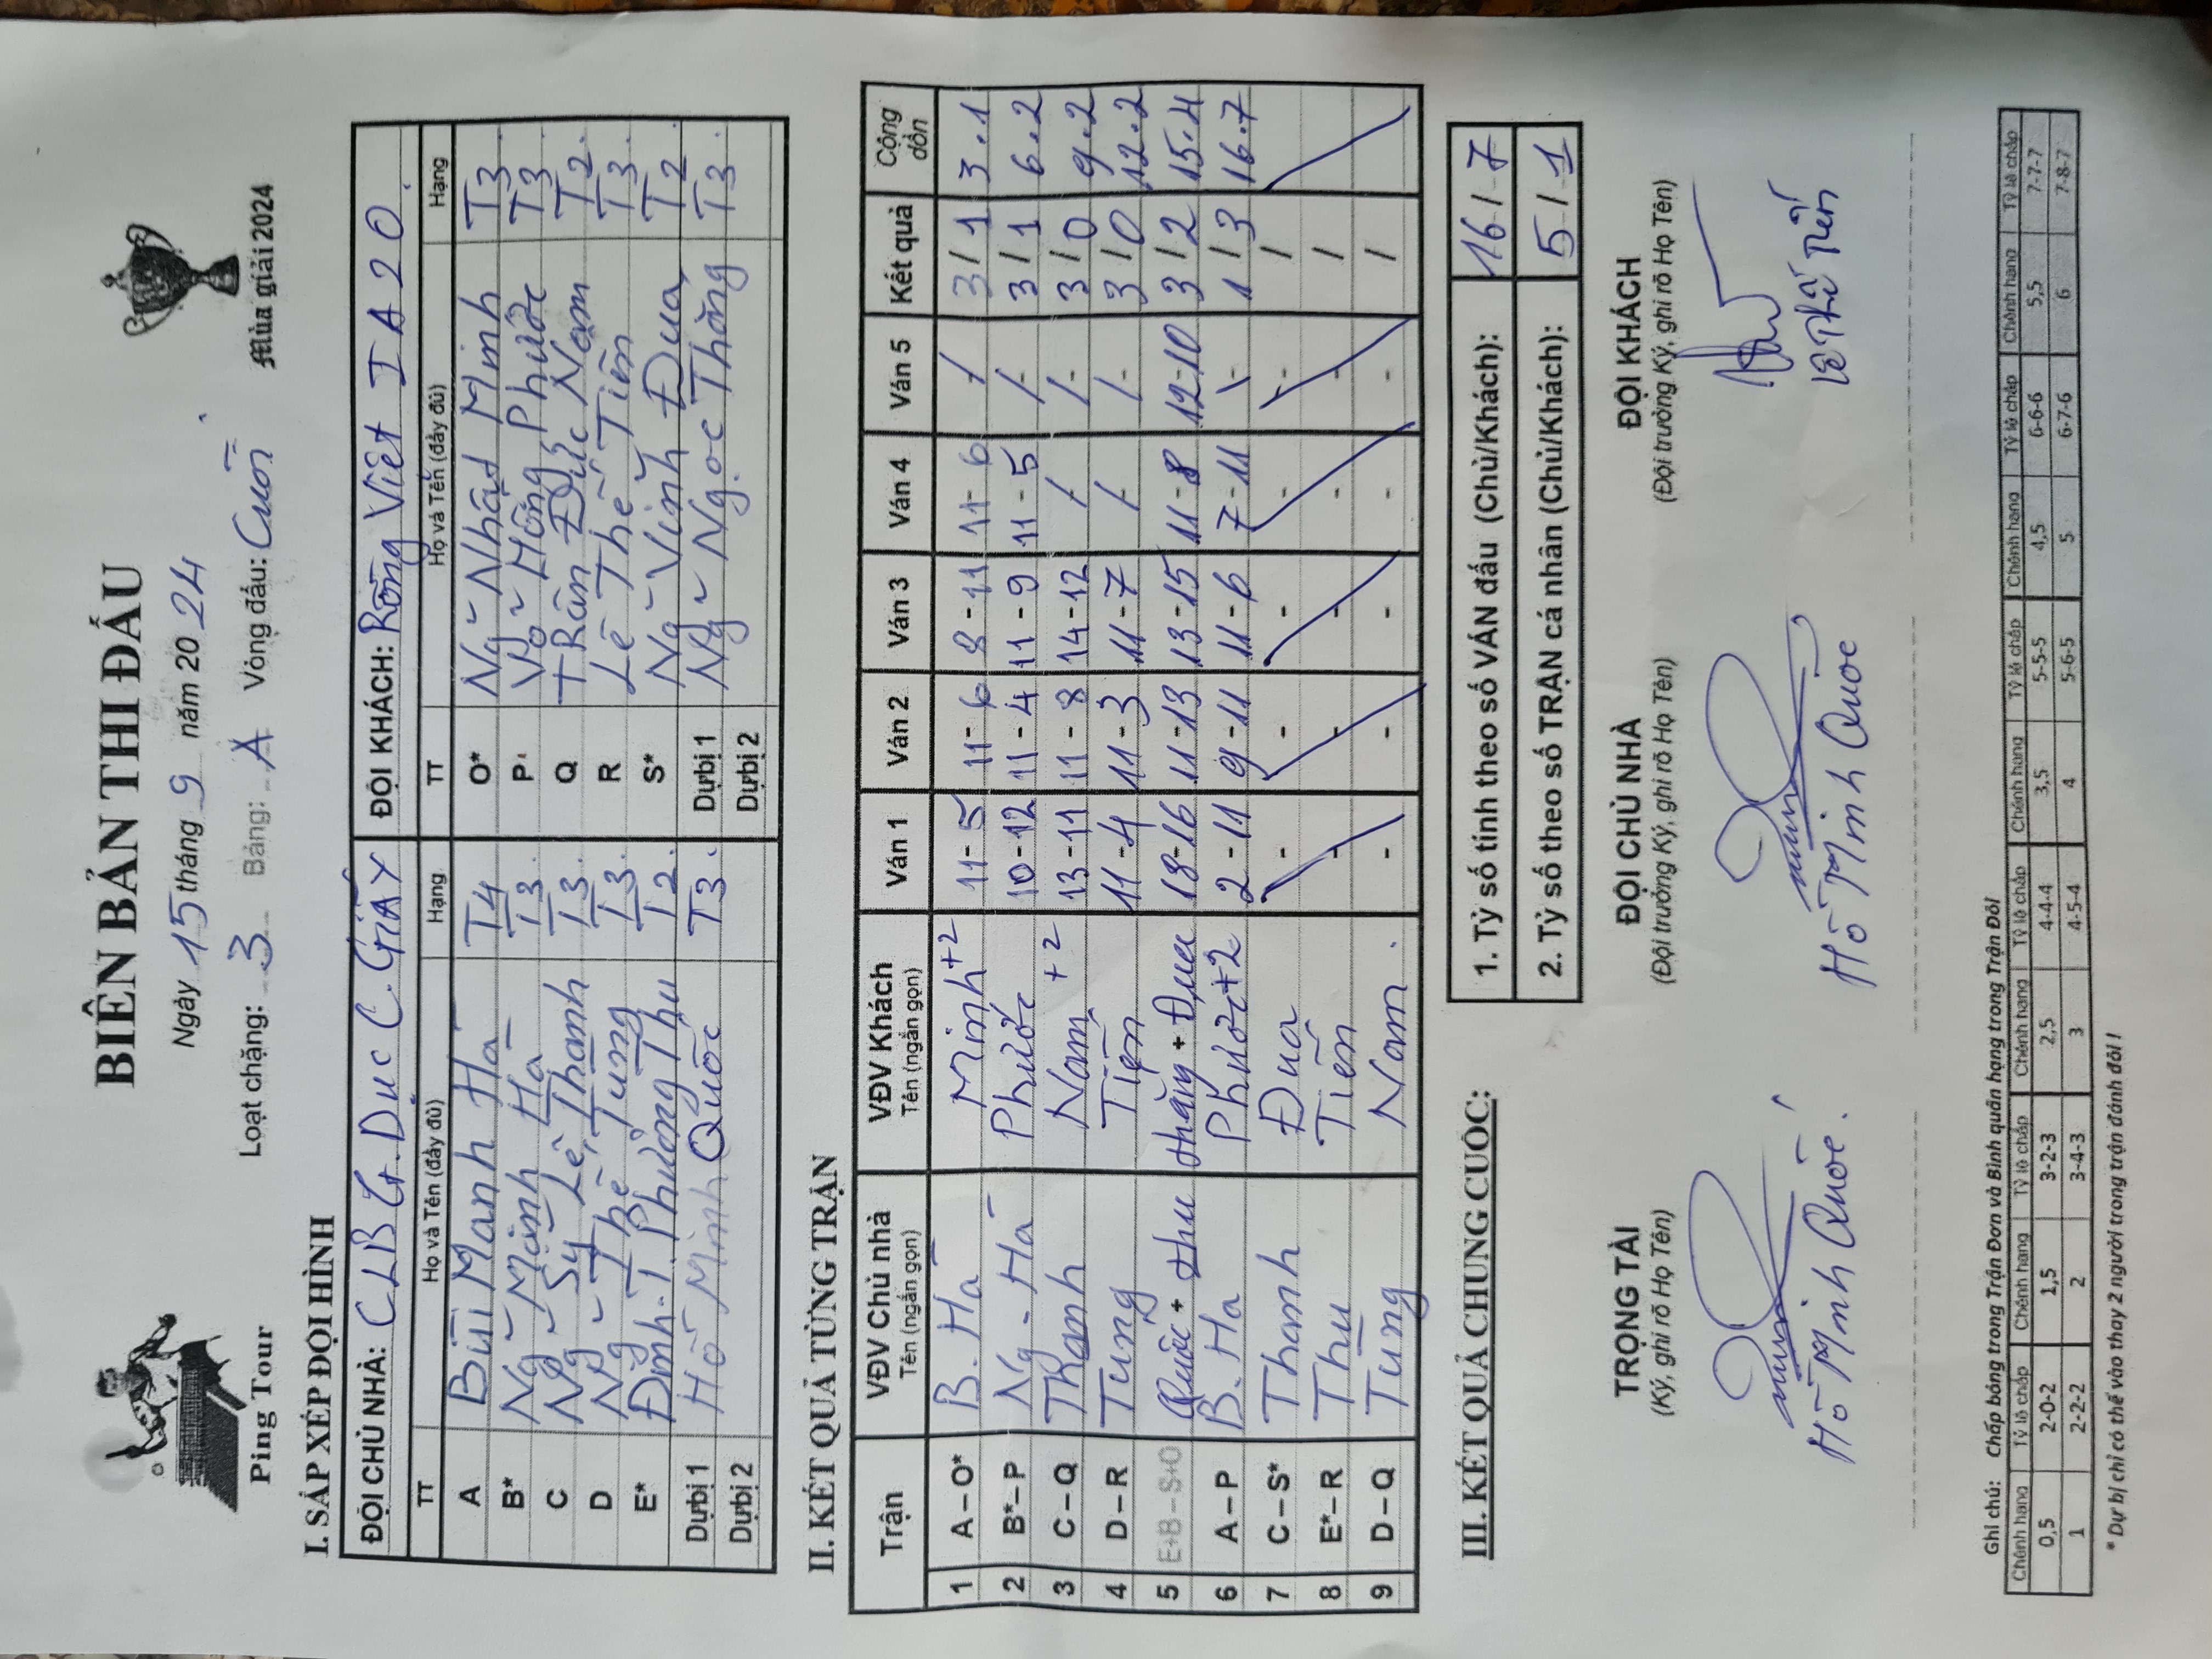 Ping Tour
BIÊN BẢN THI ĐẤU
Ngày 15 tháng 9 năm 20 24
Loạt chặng: 3 Bảng: A Vòng đấu: Cuối
Mùa giải 2024
I. SẮP XẾP ĐỘI HÌNH
ĐỘI CHỦ NHÀ: CLB G.Dục C.Giấy ĐỘI KHÁCH: Rồng Việt IA20.
TT Họ và Tên (đầy đủ) Hạng TT Họ và Tên (đầy đủ) Hạng
A Bùi Mạnh Hà T4 O* Ng~ Nhật Minh T3
B* Ng~ Mạnh Hà T3 P Võ Hồng Phước T3
C Ng~ Sỹ Lê Thanh T3 Q Trần Đức Nam T2
D Ng~ Thế Tùng T3 R Lê Thế Tiến T3
E* Đinh.T.Phương Thu T2 S* Ng~ Vinh Đua T2
Dự bị 1 Hồ Minh Quốc T3 Dự bị 1 Ng~ Ngọc Thắng T3
Dự bị 2 Dự bị 2
II. KẾT QUẢ TỪNG TRẬN
Trận VĐV Chủ nhà Tên (ngắn gọn) VĐV Khách Tên (ngắn gọn) Ván 1 Ván 2 Ván 3 Ván 4 Ván 5 Kết quả Cộng dồn
1 A – O* B. Hà Minh+2 11-5 11-6 8-11 11-6 / 3/1 3.1
2 B* – P Ng. Hà Phước 10-12 11-4 11-9 11-5 /- 3/1 6.2
3 C – Q Thanh Nam +2 13-11 11-8 14-12 / /- 3/0 9.2
4 D – R Tùng Tiến 11-4 11-3 11-7 /- /- 3/0 12.2
5 E+B – S+O Quốc + Thu Thắng + Đua 18-16 11-13 13-15 11-8 12-10 3/2 15.4
6 A – P B. Hà Phước+2 2-11 9-11 11-6 7-11 \- 1/3 16.7
7 C – S* Thanh Đua - - - - - /
8 E* – R Thu Tiến - - - - - /
9 D – Q Tùng Nam. - - - - - /
III. KẾT QUẢ CHUNG CUỘC:
1. Tỷ số tính theo số VÁN đấu (Chủ/Khách): 16 / 7
2. Tỷ số theo số TRẬN cá nhân (Chủ/Khách): 5 / 1
TRỌNG TÀI ĐỘI CHỦ NHÀ ĐỘI KHÁCH
(Ký, ghi rõ Họ Tên) (Đội trưởng Ký, ghi rõ Họ Tên) (Đội trưởng Ký, ghi rõ Họ Tên)
Hồ Minh Quốc. Hồ Minh Quốc Lê Thế Tiến
Ghi chú: Chấp bóng trong Trận Đơn và Bình quân hạng trong Trận Đôi
Chênh hạng Tỷ lệ chấp Chênh hạng Tỷ lệ chấp Chênh hạng Tỷ lệ chấp Chênh hạng Tỷ lệ chấp Chênh hạng Tỷ lệ chấp Chênh hạng Tỷ lệ chấp
0,5 2-0-2 1,5 3-2-3 2,5 4-4-4 3,5 5-5-5 4,5 6-6-6 5,5 7-7-7
1 2-2-2 2 3-4-3 3 4-5-4 4 5-6-5 5 6-7-6 6 7-8-7
* Dự bị chỉ có thể vào thay 2 người trong trận đánh đôi !